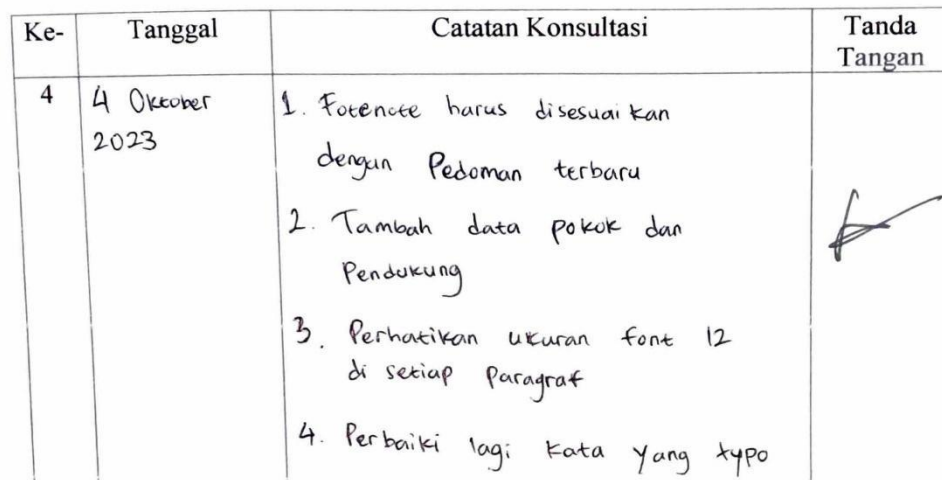 Ke- Tanggal Catatan Konsultasi Tanda
Tangan
4 4 Oktober 1. Fotenote harus disesuaikan
2023 dengan Pedoman terbaru
2. Tambah data pokok dan
Pendukung
3. Perhatikan ukuran font 12
di setiap Paragraf
4. Perbaiki lagi kata yang typo